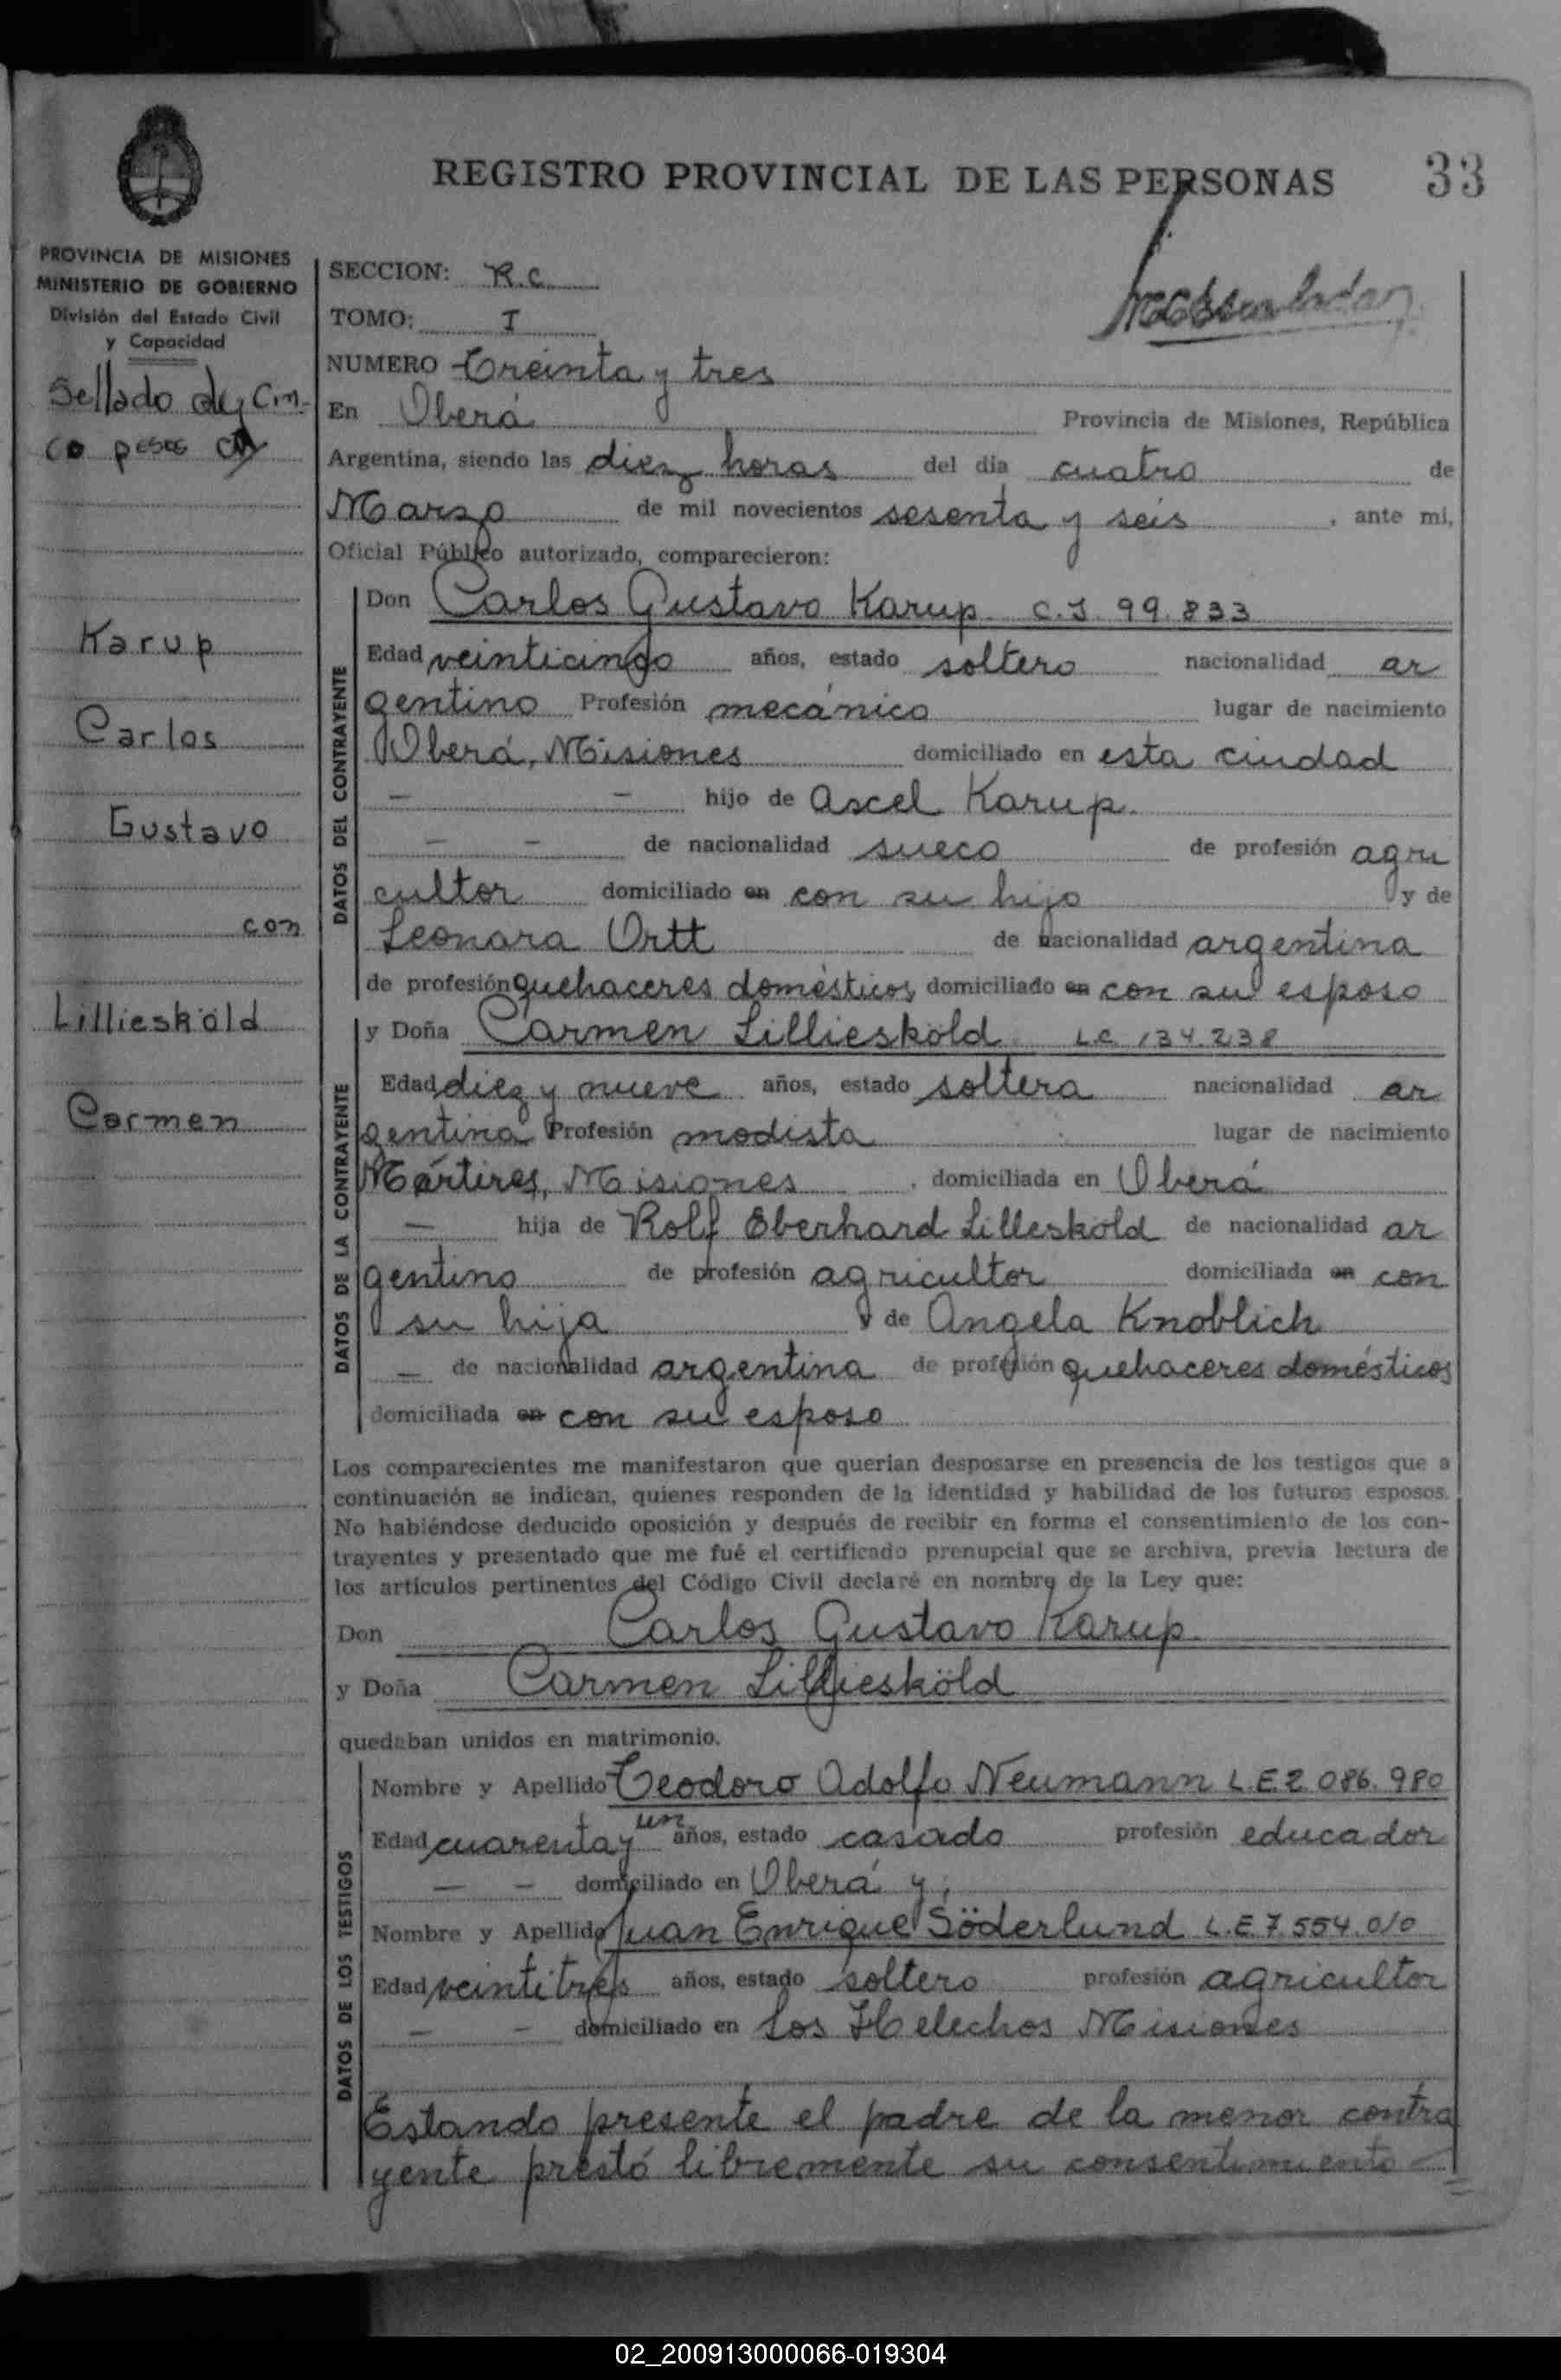 REGISTRO PROVINCIAL DE LAS PERSONAS 33
PROVINCIA DE MISIONES
MINISTERIO DE GOBIERNO
División del Estado Civil
y Capacidad
Sellado de cin-
co pesos
Karup
Carlos
Gustavo
con
Lillieskold
Carmen
SECCION: R.C.
TOMO: I
NUMERO Treinta y tres
En Oberá Provincia de Misiones, República
Argentina, siendo las diez horas del día cuatro de
Marzo de mil novecientos sesenta y seis, ante mi,
Oficial Público autorizado, comparecieron:
DATOS DEL CONTRAYENTE
Don Carlos Gustavo Karup. C.I. 99.833
Edad veinticinco años, estado soltero nacionalidad ar
gentino Profesión mecánico lugar de nacimiento
Oberá, Misiones domiciliado en esta ciudad
— — hijo de Ascel Karup.
— — de nacionalidad sueco de profesión agri
cultor domiciliado en con su hijo y de
Leonara Ortt de nacionalidad argentina
de profesión quehaceres domésticos domiciliado en con su esposo
DATOS DE LA CONTRAYENTE
y Doña Carmen Lillesköld L.C. 134.238
Edad diez y nueve años, estado soltera nacionalidad ar
gentina Profesión modista lugar de nacimiento
Mártires, Misiones, domiciliada en Oberá
— hija de Rolf Eberhard Lilleskold de nacionalidad ar
gentino de profesión agricultor domiciliada en con
su hija y de Angela Knoblich
— de nacionalidad argentina de profesión quehaceres domésticos
domiciliada en con su esposo
Los comparecientes me manifestaron que querian desposarse en presencia de los testigos que a
continuación se indican, quienes responden de la identidad y habilidad de los futuros esposos.
No habiéndose deducido oposición y después de recibir en forma el consentimiento de los con-
trayentes y presentado que me fué el certificado prenupcial que se archiva, previa lectura de
los artículos pertinentes del Código Civil declaré en nombre de la Ley que:
Don Carlos Gustavo Karup.
y Doña Carmen Lilliesköld
quedaban unidos en matrimonio.
DATOS DE LOS TESTIGOS
Nombre y Apellido Teodoro Adolfo Neumann L.E 2.086.980
Edad cuarenta y un años, estado casado profesión educador
— — domiciliado en Oberá y;
Nombre y Apellido Juan Enrique Söderlund L.E 7.554.010
Edad veintitrés años, estado soltero profesión agricultor
— — domiciliado en Los Helechos Misiones
Estando presente el padre de la menor contra
yente prestó libremente su consentimiento —
02_200913000066-019304